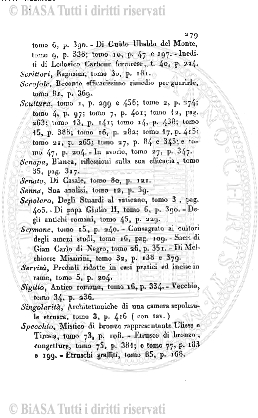 © BIASA Tutti i diritti riservati
279
tomo 6, p. 390. - Di Guido Ubaldo del Monte,
tomo 9, p. 336; tomo 10, p. 47 e 197. - Inedi-
ti di Lodovico Carbone ferrarese, t. 40, p. 224.
Scrittori, Ragusini, tomo 30, p. 181.
Scrofole, Recente efficacissimo rimedio per guarirle,
tomo 81, p. 369.
Scultura, tomo 1, p. 299 e 456; tomo 2, p. 274;
tomo 4, p. 97; tomo 7, p. 401; tomo 12, pag.
263; tomo 13, p. 141; tomo 14, p. 438; tomo
15, p. 386; tomo 16, p. 282; tomo 17, p. 415;
tomo 21, p. 265; tomo 27, p. 84 e 345; to-
mo 47, p. 204. - In avorio, tomo 27, p. 347.
Senapa, Bianca, riflessioni sulla sua efficacia, tomo
35, pag. 317.
Senato, Di Casale, tomo 80, p. 121.
Senna, Sua analisi, tomo 12, p. 39.
Sepolcro, Degli Stuardi al vaticano, tomo 3, pag.
405. - Di papa Giulio II, tomo 6, p. 390. - De-
gli antichi romani, tomo 45, p. 229.
Sermone, tomo 15, p. 240. - Consagrato ai cultori
degli ameni studi, tomo 16, pag. 109. - Sacri di
Gian Carlo di Negro, tomo 26, p. 351. - Di Mel-
chiorre Missirini, tomo 32, p. 138 e 379.
Servitù, Prediali ridotte in casi pratici ed incise in
rame, tomo 5, p. 204.
Sigillo, Antico romano, tomo 16, p. 334. - Vecchio,
tomo 34, p. 236.
Singolarità, Architettoniche di una camera sepolcra-
le etrusca, tomo 3, p. 416 (con tav.)
Specchio, Mistico di bronzo rappresentante Ulisse e
Tiresia, tomo 73, p. 108. - Etrusco di bronzo,
congetture, tomo 75, p. 381; e tomo 77, p. 183
e 199. - Etruschi graffiti, tomo 85, p. 168.
© BIASA Tutti i diritti riservati